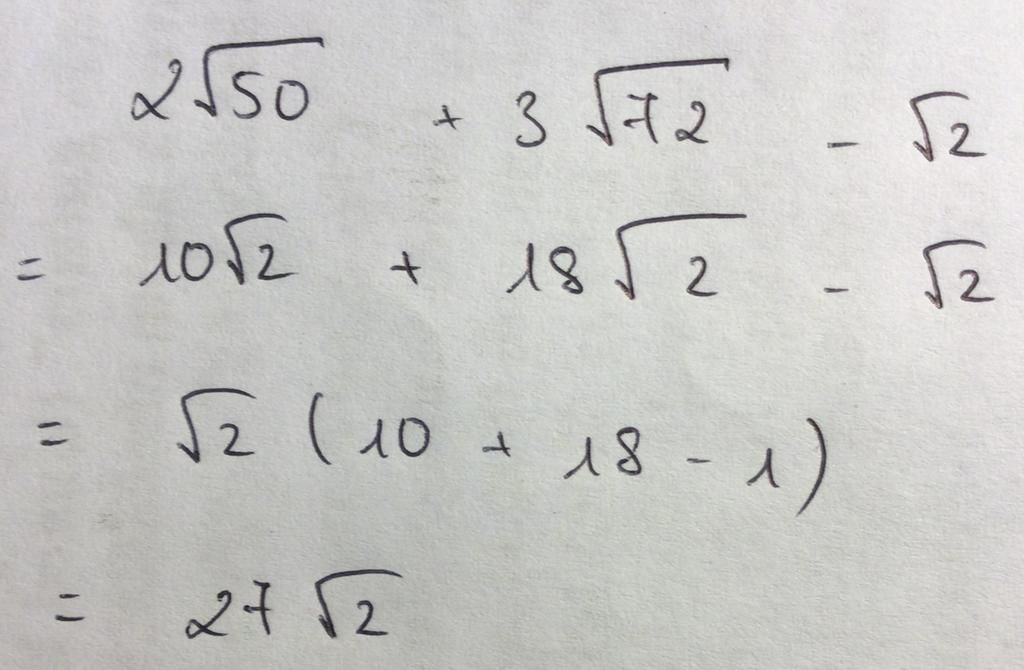 2√50 + 3√72 - √2
= 10√2 + 18√2 - √2
= √2 (10 + 18 - 1)
= 27√2